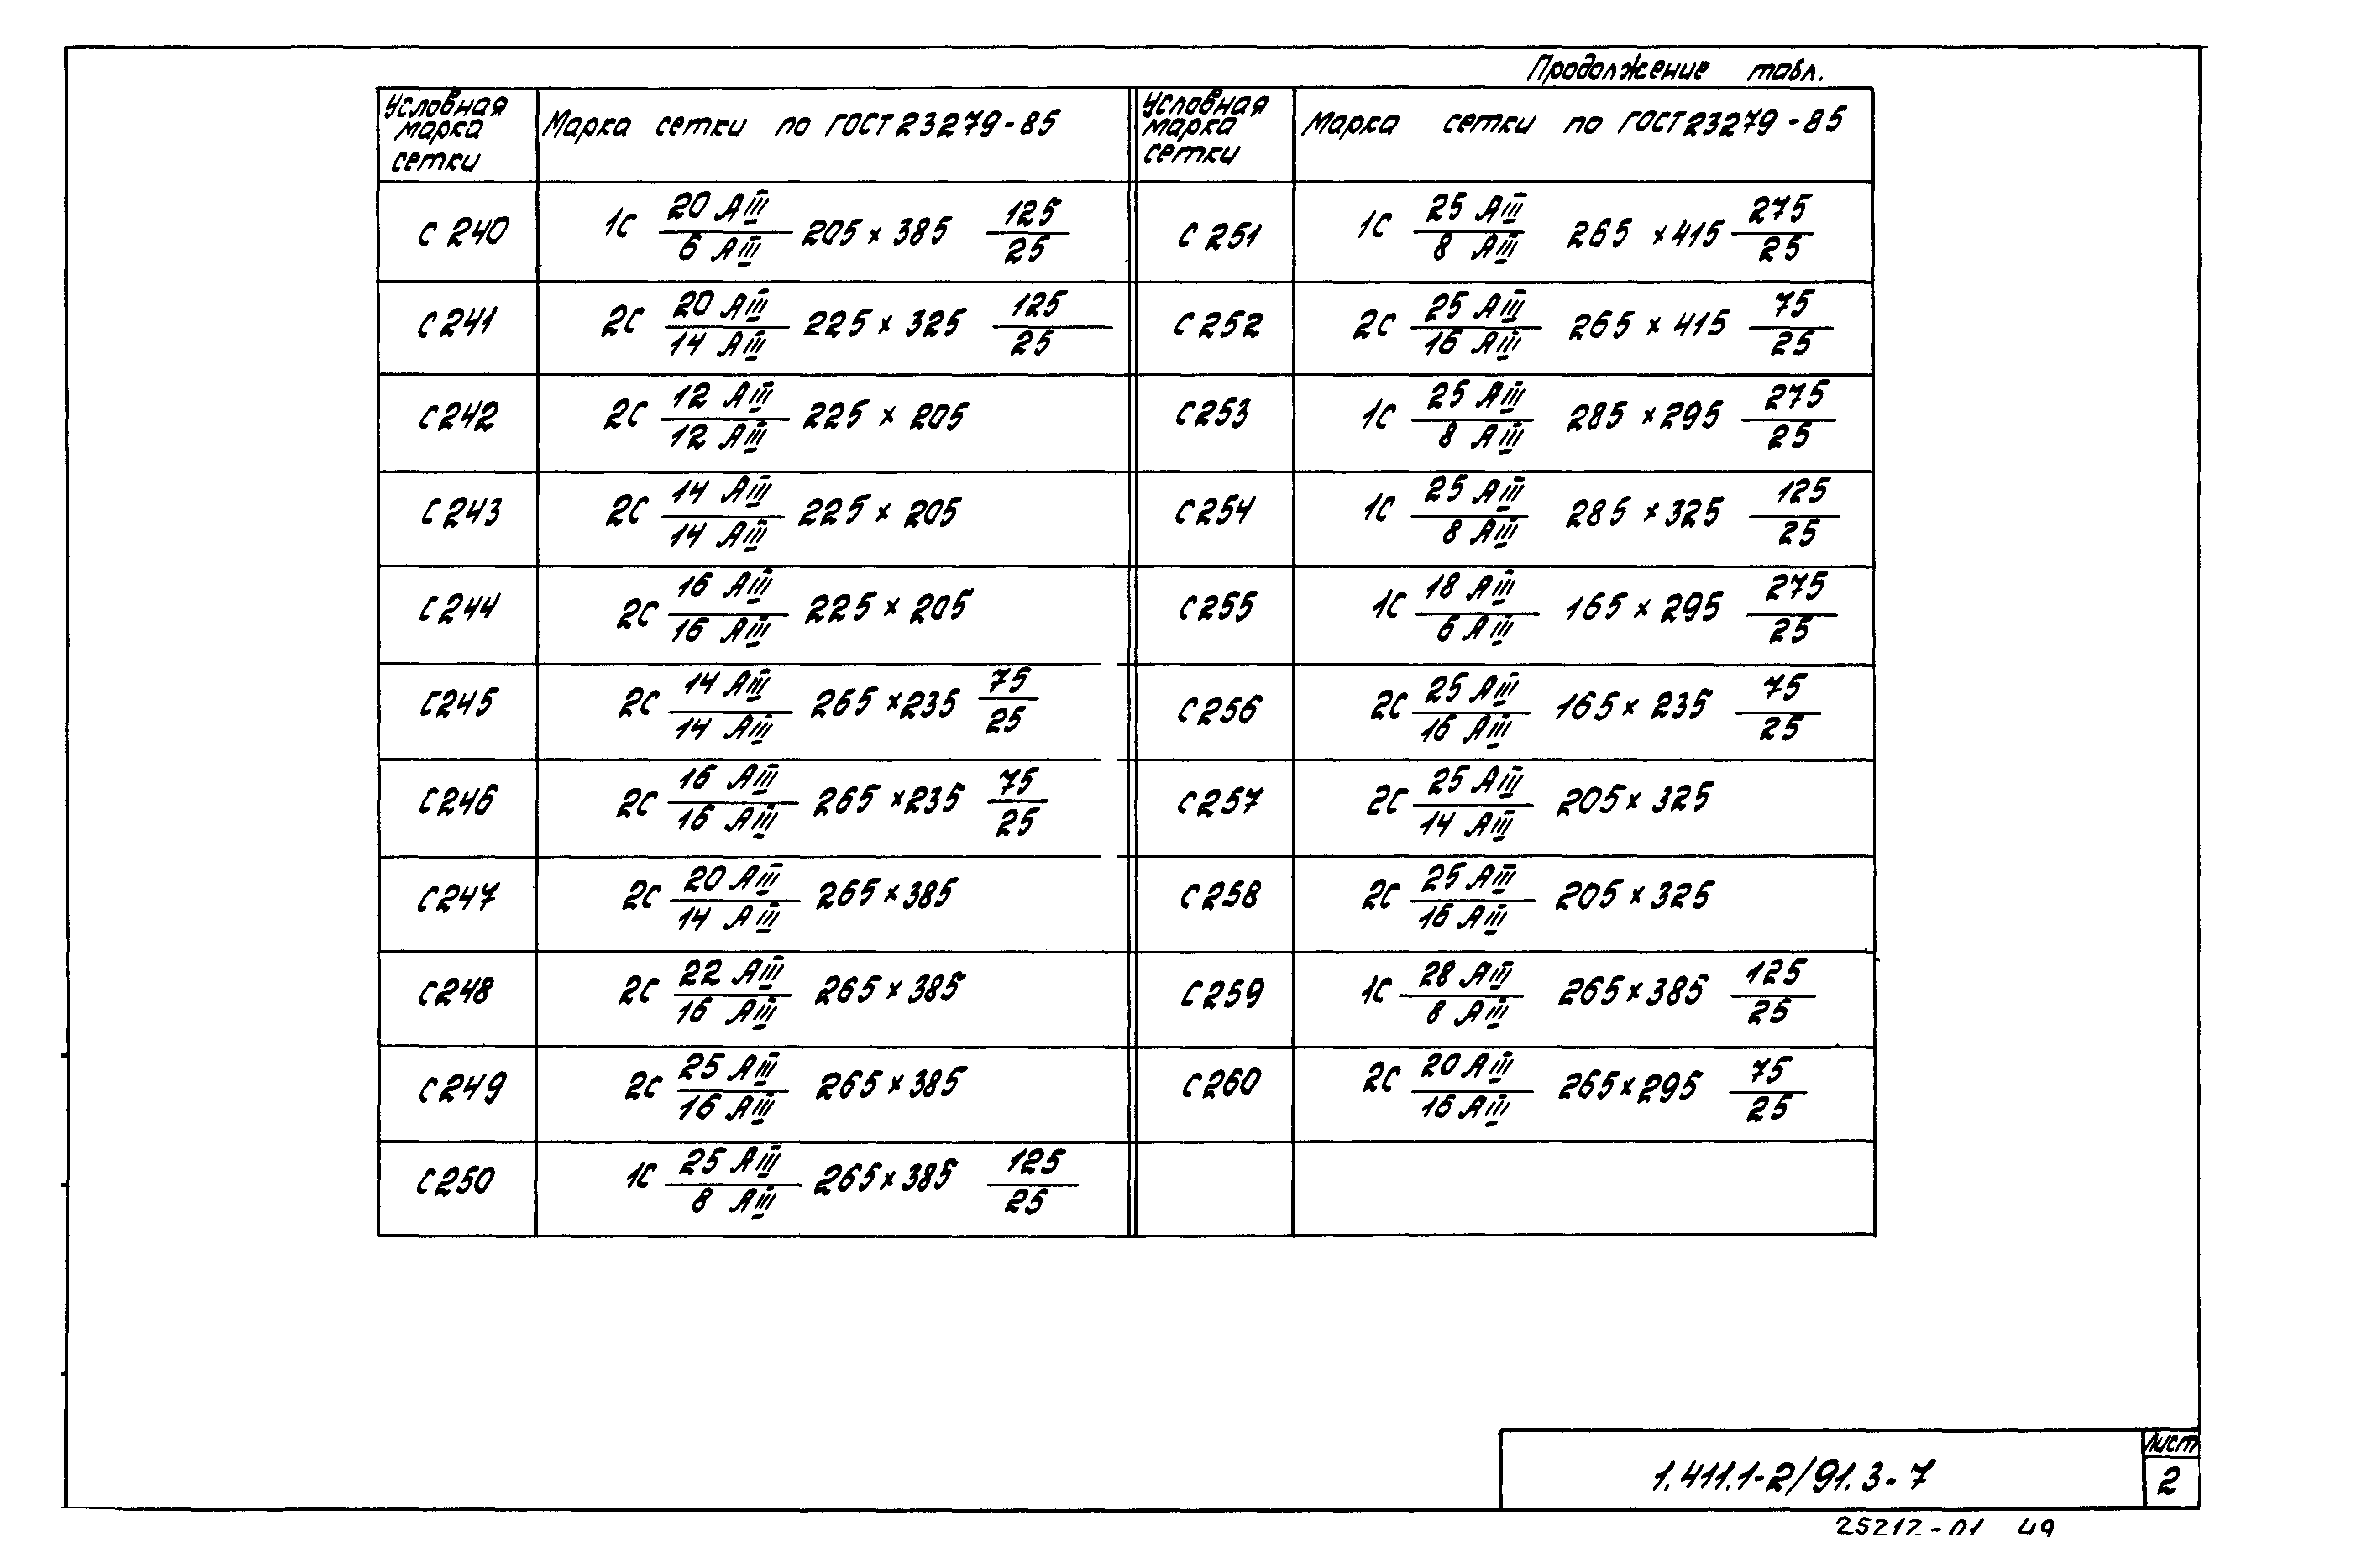 Продолжение табл.
Условная марка сетки | Марка сетки по ГОСТ 23279-85 | Условная марка сетки | Марка сетки по ГОСТ 23279-85
С 240 | 1С 20 АIII / 6 АIII 205 × 385 125/25 | С 251 | 1С 25 АIII / 8 АIII 265 × 415 275/25
С 241 | 2С 20 АIII / 14 АIII 225 × 325 125/25 | С 252 | 2С 25 АIII / 16 АIII 265 × 415 75/25
С 242 | 2С 12 АIII / 12 АIII 225 × 205 | С 253 | 1С 25 АIII / 8 АIII 285 × 295 275/25
С 243 | 2С 14 АIII / 14 АIII 225 × 205 | С 254 | 1С 25 АIII / 8 АIII 285 × 325 125/25
С 244 | 2С 16 АIII / 16 АIII 225 × 205 | С 255 | 1С 18 АIII / 6 АIII 165 × 295 275/25
С 245 | 2С 14 АIII / 14 АIII 265 × 235 75/25 | С 256 | 2С 25 АIII / 16 АIII 165 × 235 75/25
С 246 | 2С 16 АIII / 16 АIII 265 × 235 75/25 | С 257 | 2С 25 АIII / 14 АIII 205 × 325
С 247 | 2С 20 АIII / 14 АIII 265 × 385 | С 258 | 2С 25 АIII / 16 АIII 205 × 325
С 248 | 2С 22 АIII / 16 АIII 265 × 385 | С 259 | 1С 28 АIII / 8 АIII 265 × 385 125/25
С 249 | 2С 25 АIII / 16 АIII 265 × 385 | С 260 | 2С 20 АIII / 16 АIII 265 × 295 75/25
С 250 | 1С 25 АIII / 8 АIII 265 × 385 125/25
1.411.1-2/91.3-7
Лист
2
25212-01 49